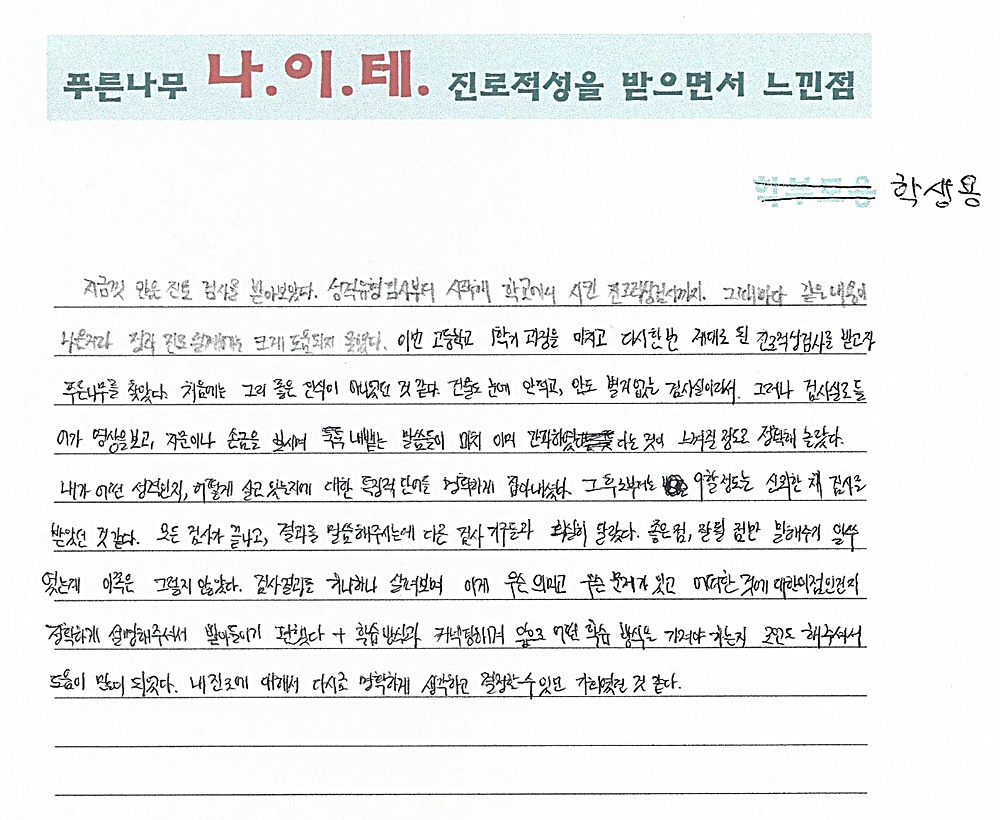 푸른나무 나.이.테. 진로적성을 받으면서 느낀점
학부모용 학생용
지금껏 많은 진로 검사를 받아보았다. 성격유형검사부터 시작해 학교에서 시킨 까지. 그때마다 같은 내용이
나온지라 딱히 진로 설계에는 크게 도움되지 못했다. 이번 고등학교 1학기 과정을 마치고 다시한번 제대로 된 진로적성검사를 받고자
푸른나무를 찾았다. 처음에는 그리 좋은 인식이 아니었던 것 같다. 건물도 눈에 안띄고, 안도 별거없는 검사실이라서. 그러나 검사실로 들
어가 영상을 보고, 지문이나 손금을 보시며 툭툭 내뱉는 말씀들이 마치 이미 간파하였다는 것이 느껴질 정도로 정확해 놀랐다.
내가 어떤 성격인지, 어떻게 살고 있는지에 대한 특징적 단어를 정확하게 집어내셨다. 그 후로부터는 9할 정도는 신뢰한 채 검사를
받았던 것 같다. 모든 검사가 끝나고, 결과를 말씀해주시는데 다른 검사 기구들과 확실히 달랐다. 좋은점, 잘될 점만 말해주기 일쑤
였는데 이쪽은 그렇지 않았다. 검사결과를 하나하나 살펴보며 이게 무슨 의미고 무슨 문제가 있고 어떠한 것에 대한이점인건지
정확하게 설명해주셔서 받아들이기 편했다 + 학습방식과 커넥팅하며 앞으로 어떤 학습 방식을 가져야 하는지 조언도 해주셔서
도움이 많이 되었다. 내 진로에 대해서 다시금 명확하게 생각하고 결정할 수 있던 기회였던 것 같다.